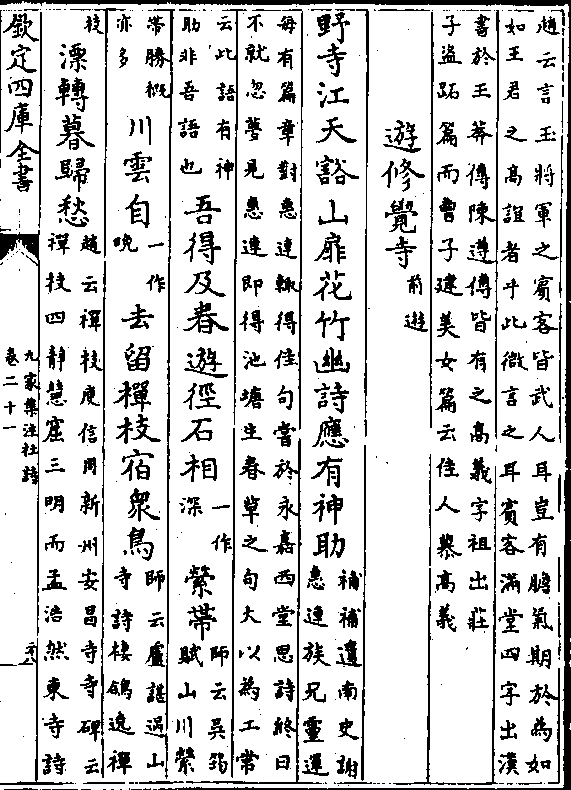 趙云言玉將軍之賓客皆武人耳豈有膽氣期於為如
如王君之高誼者乎此微言之耳賓客滿堂四字出漢
書於王莽傳陳遵傳皆有之高義字祖出莊
子盜跖篇而曹子建美女篇云佳人慕高義
遊修覺寺前遊
野寺江天豁山扉花竹幽詩應有神助
補補遺南史謝
惠連族兄靈運
每有篇章對惠連輙得佳句嘗於永嘉西堂思詩終日
不就忽夢見惠連即得池塘生春草之句大以為工常
云此語有神
助非吾語也
吾得及春遊徑石相
一作
深
縈帶
師云吳筠
賦山川縈
帶勝概
亦多
川雲自
一作
晩
去留禪枝宿衆鳥
師云盧諶過山
寺詩棲鴿逸禪
枝
漂轉暮歸愁
趙云禪枝庾信周新州安昌寺寺碑云
禪枝四静慧窟三明而孟浩然東寺詩
欽定四庫全書
九家集注杜詩
卷二十一